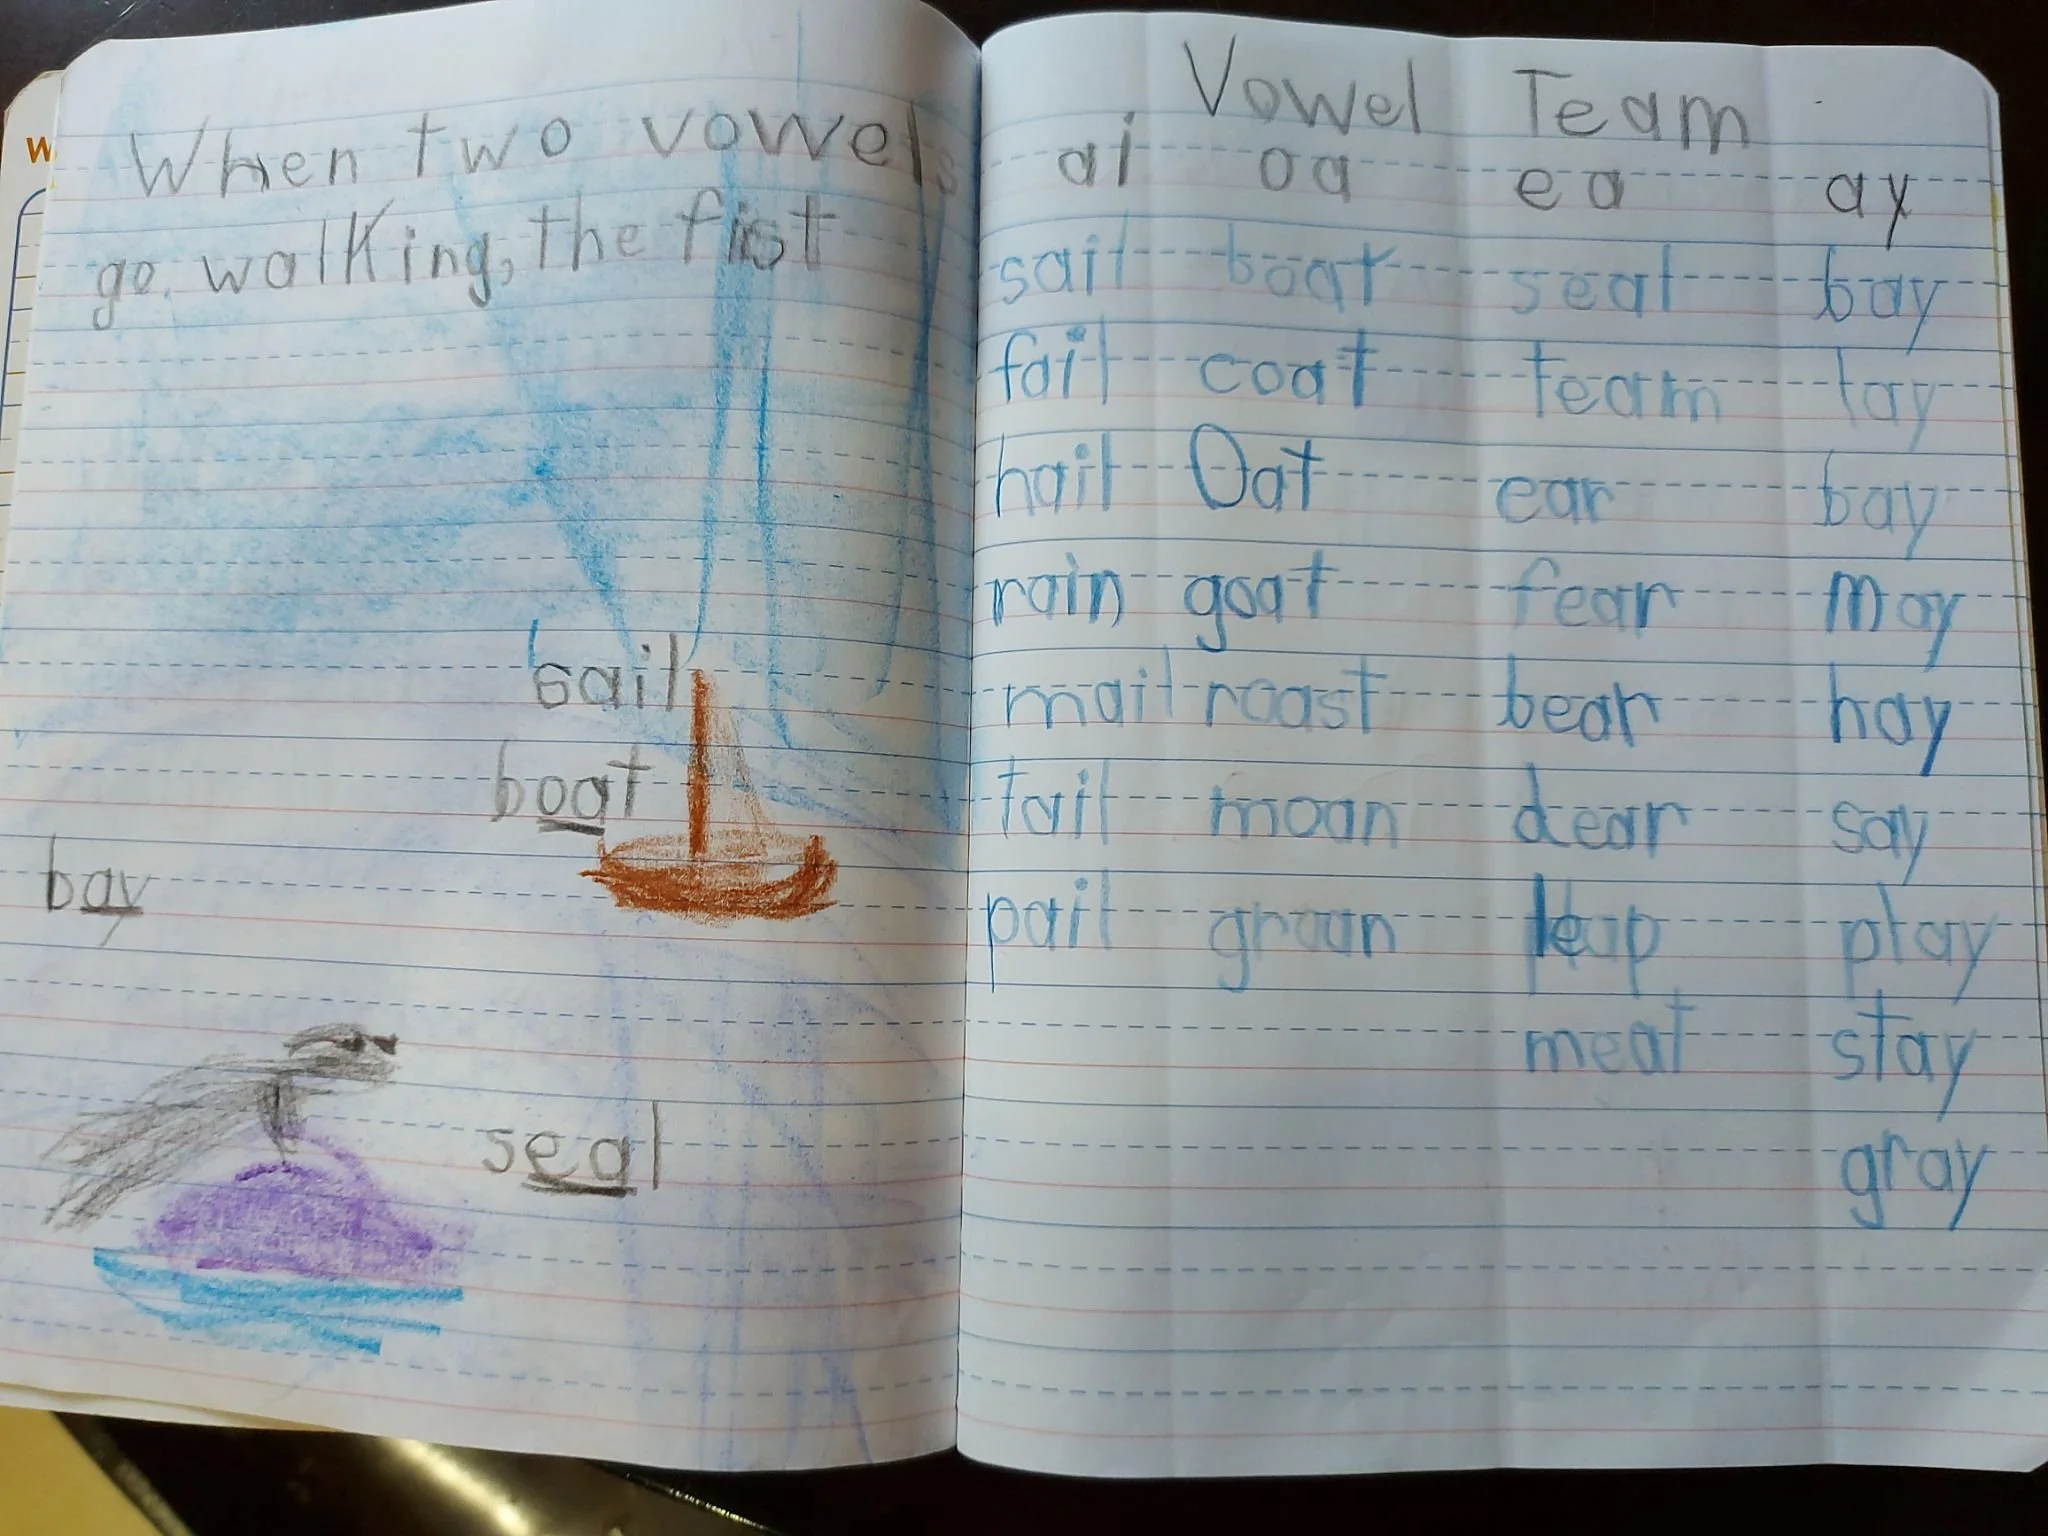 When two vowels
go walking, the fist
sail
boat
bay
seal
Vowel Team
ai oa ea ay
sail boat seal bay
fail coat team lay
hail Oat ear bay
rain goat fear may
mail roast bear hay
tail moan dear say
pail groan leap play
meat stay
gray
W